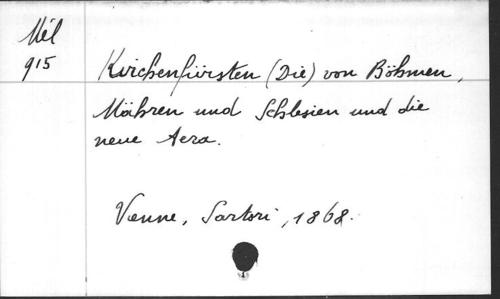 Mél
915
Kirchenfürsten (Die) von Böhmen,
Mähren und Schlesien und die
neue Aera.
Vienne, Sartori, 1868.